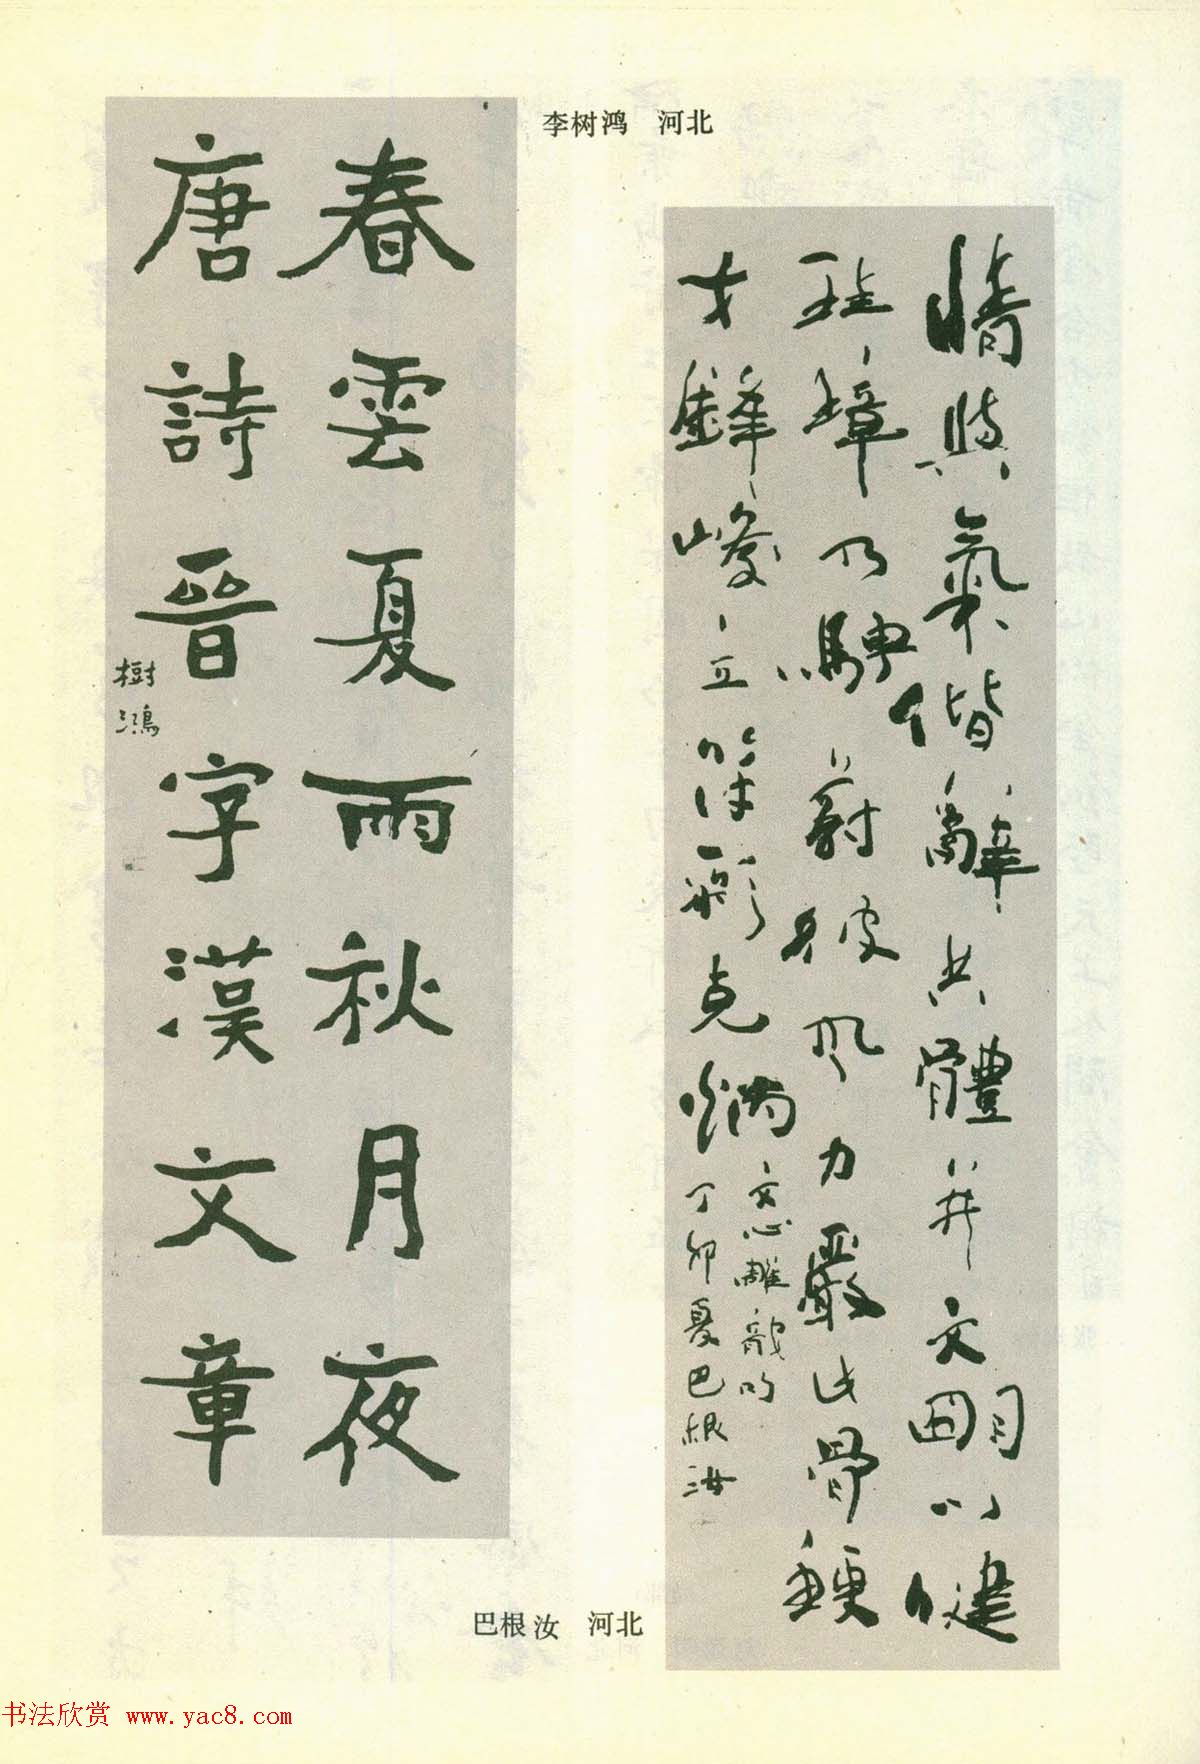 李树鸿 河北
春雲夏雨秋月夜
唐詩晉字漢文章
樹鴻
情與氣偕辭共體并文明以健
珪璋乃騁蔚彼風力嚴此骨鯁
才鋒峻立符彩克炳
文心雕龍句
丁卯夏巴根汝
巴根汝 河北
书法欣赏 www.yac8.com